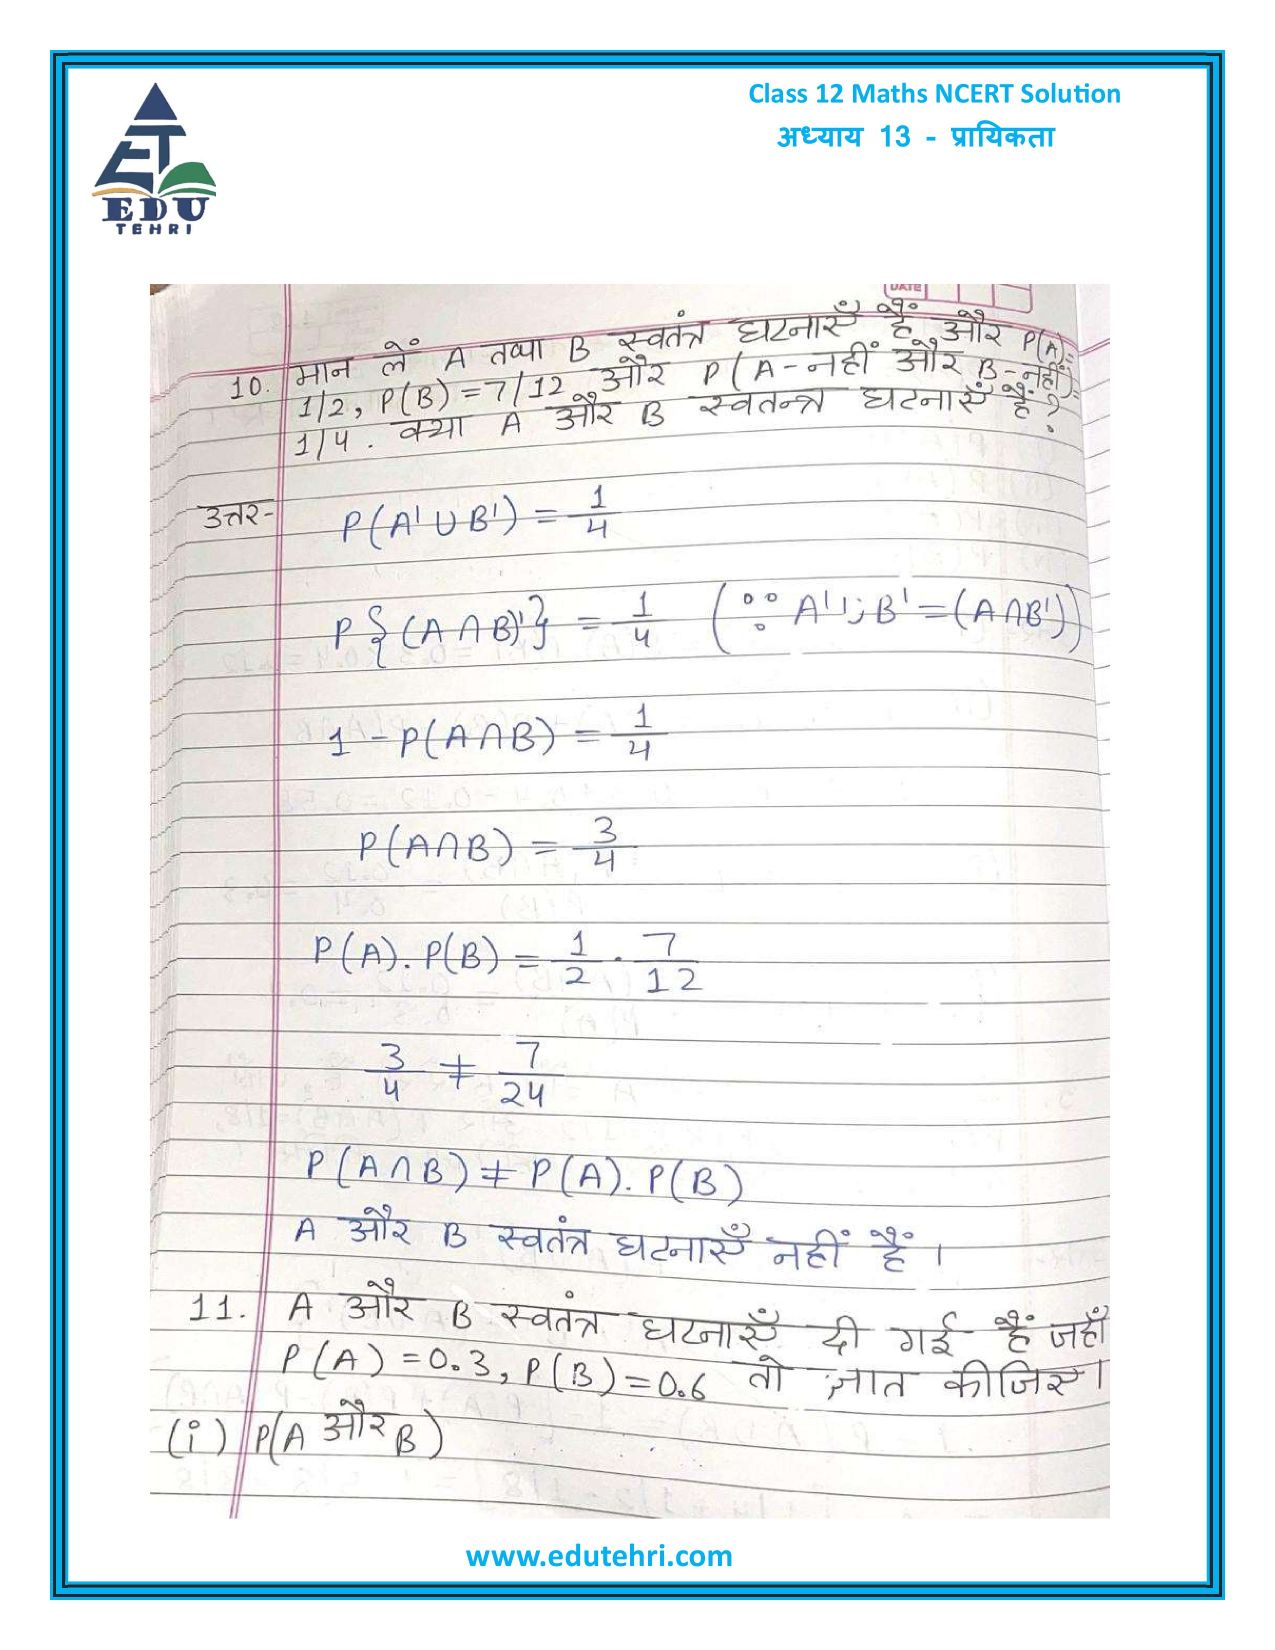 Class 12 Maths NCERT Solution
अध्याय 13 - प्रायिकता
EDU
TEHRI
DATE
10. मान लें A तथा B स्वतंत्र घटनाएँ हैं और P(A)=
1/2, P(B)=7/12 और P(A-नहीं और B-नहीं)=
1/4. क्या A और B स्वतन्त्र घटनाएँ हैं?
उत्तर- P(A'∪B') = 1/4
P{(A∩B)'} = 1/4 (∵ A'∪B'=(A∩B'))
1-P(A∩B) = 1/4
P(A∩B) = 3/4
P(A).P(B) = 1/2 . 7/12
3/4 ≠ 7/24
P(A∩B) ≠ P(A).P(B)
A और B स्वतंत्र घटनाएँ नहीं हैं।
11. A और B स्वतंत्र घटनाएँ दी गई हैं जहाँ
P(A)=0.3, P(B)=0.6 तो ज्ञात कीजिए।
(i) P(A और B)
www.edutehri.com